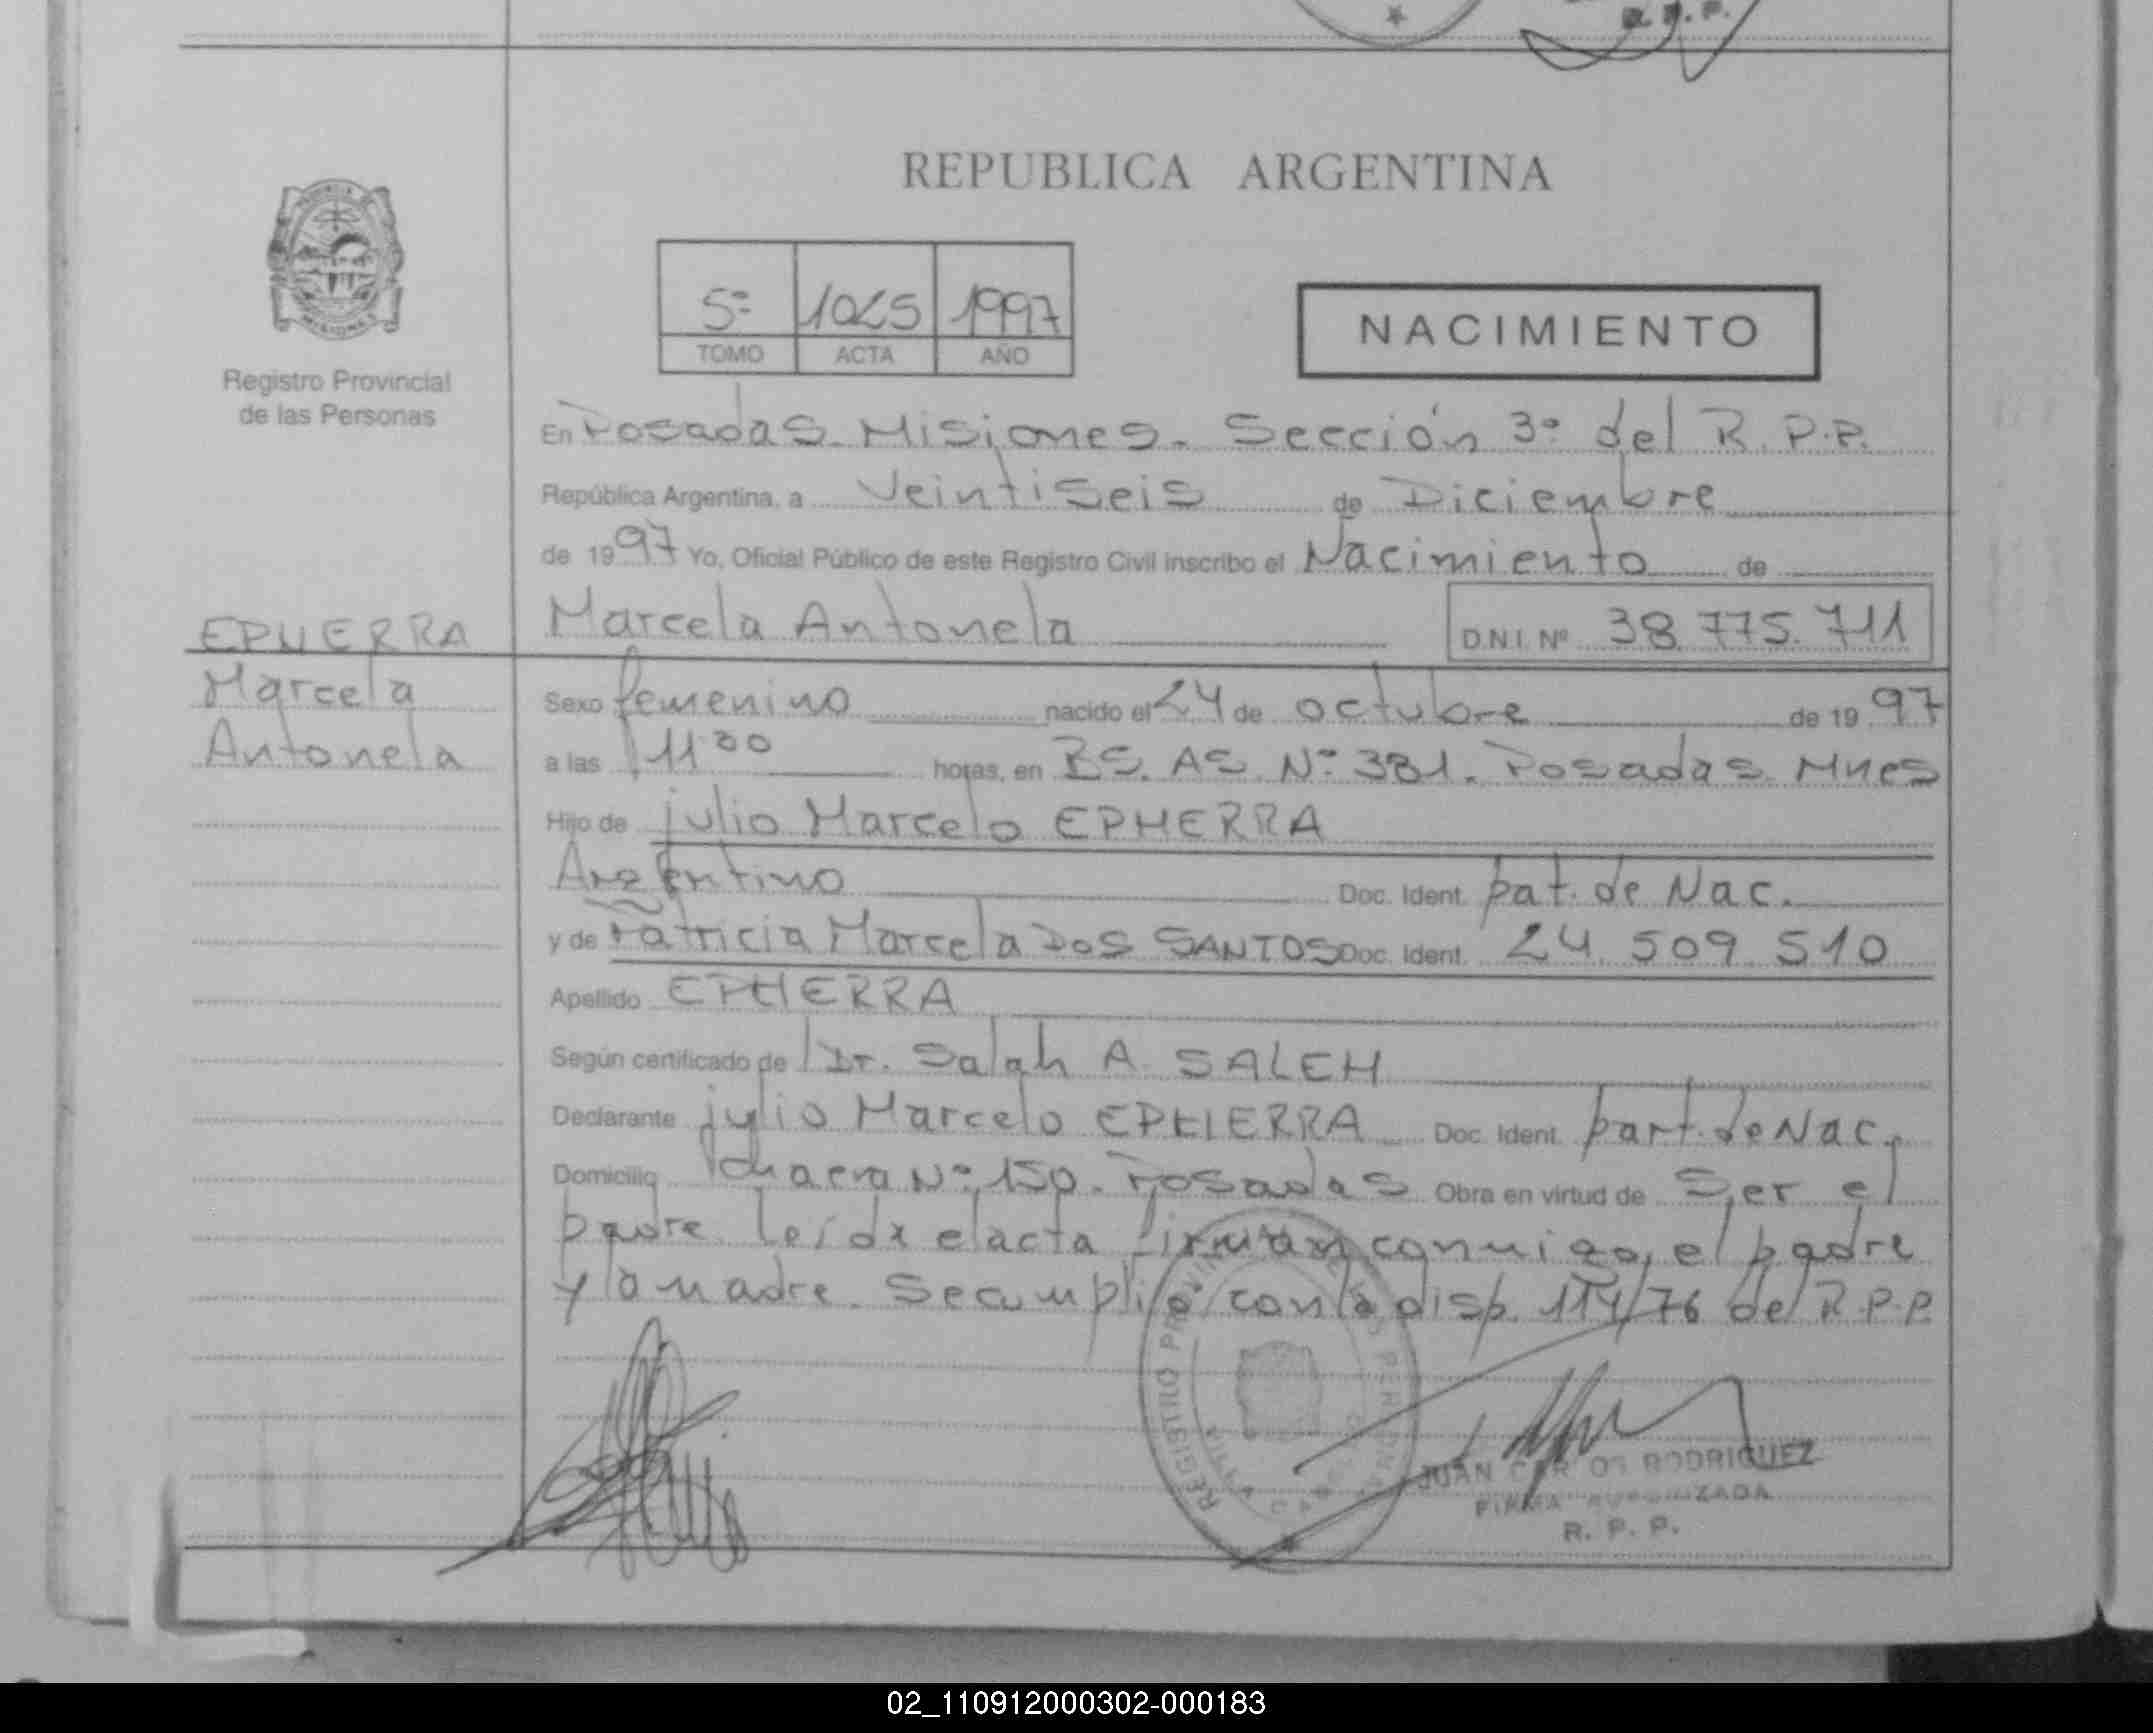 R.P.P.
REPUBLICA ARGENTINA
5º 1025 1997
TOMO ACTA AÑO
NACIMIENTO
Registro Provincial
de las Personas
En Posadas. Misiones. Sección 3º del R.P.P.
República Argentina, a Veintiseis de Diciembre
de 1997 Yo, Oficial Público de este Registro Civil inscribo el Nacimiento de
Marcela Antonela D.N.I. Nº 38.775.711
EPHERRA
Marcela
Antonela
Sexo femenino nacido el 24 de octubre de 1997
a las 11 00 horas, en BS. AS. Nº 381. Posadas. Mnes
Hijo de julio Marcelo EPHERRA
Argentino Doc. Ident. pat. de Nac.
y de Patricia Marcela DOS SANTOS Doc. Ident. 24.509.510
Apellido EPHERRA
Según certificado de Dr. Salah A. SALEH
Declarante julio Marcelo EPHERRA Doc. Ident. part. de Nac.
Domicilio chacra Nº 150. Posadas Obra en virtud de Ser el
padre. Leída el acta firman conmigo, el padre
y la madre. Se cumplió con la disp. 114/76 del R.P.P.
REGISTRO PROVINCIAL DE LAS PERSONAS
JUAN CARLOS RODRIGUEZ
FIRMA AUTORIZADA
R. P. P.
02_110912000302-000183